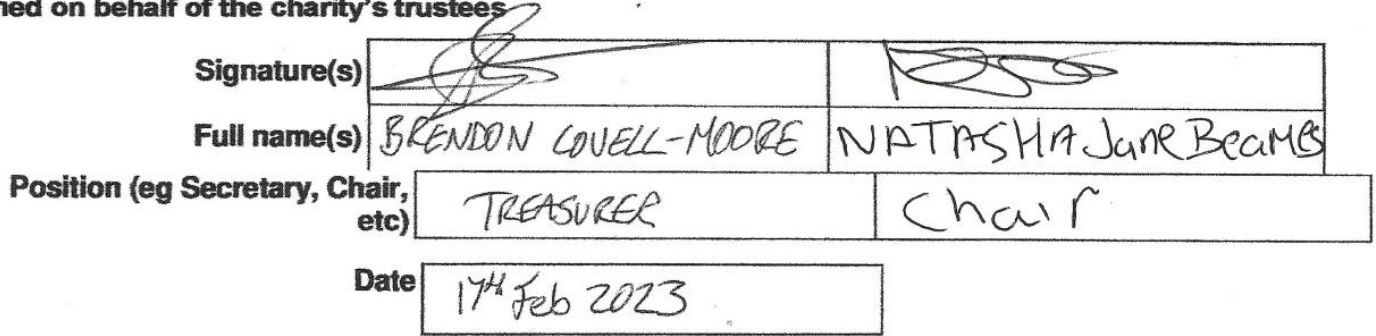 ned on behalf of the charity's trustees
Signature(s)
Full name(s) BRENDON LOVELL-MOORE NATASHA Jane Beames
Position (eg Secretary, Chair, etc) TREASURER Chair
Date 17th Feb 2023